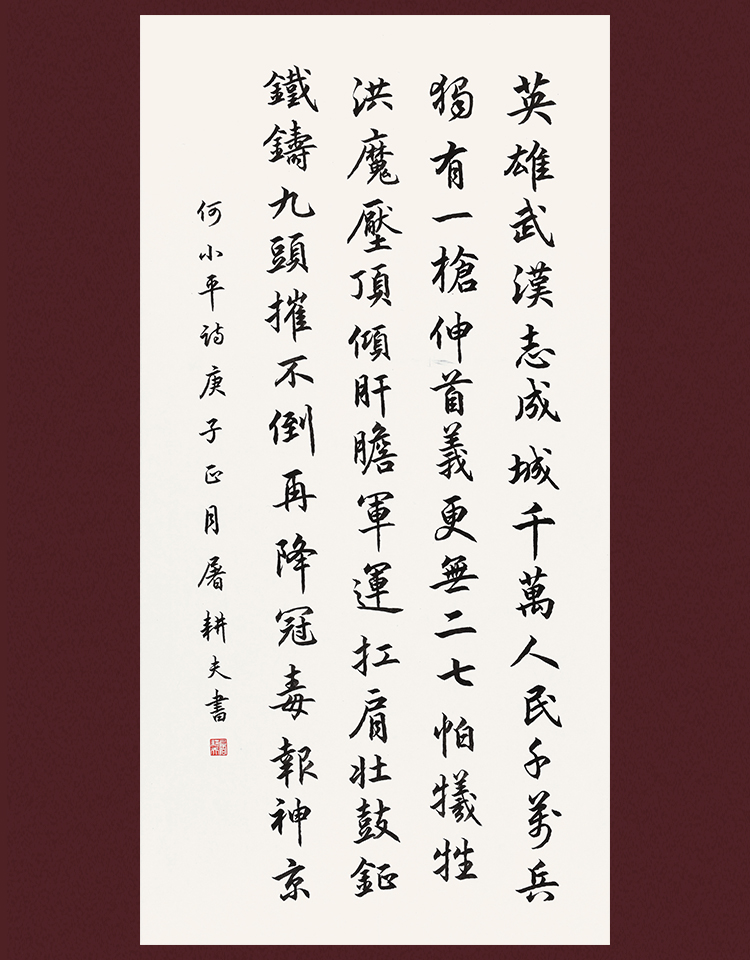 英雄武漢志成城千萬人民千萬兵
獨有一槍伸首義更無二七怕犧牲
洪魔壓頂傾肝膽軍運扛肩壯鼓鉦
鐵鑄九頭摧不倒再降冠毒報神京
何小平詩庚子正月屠耕夫書